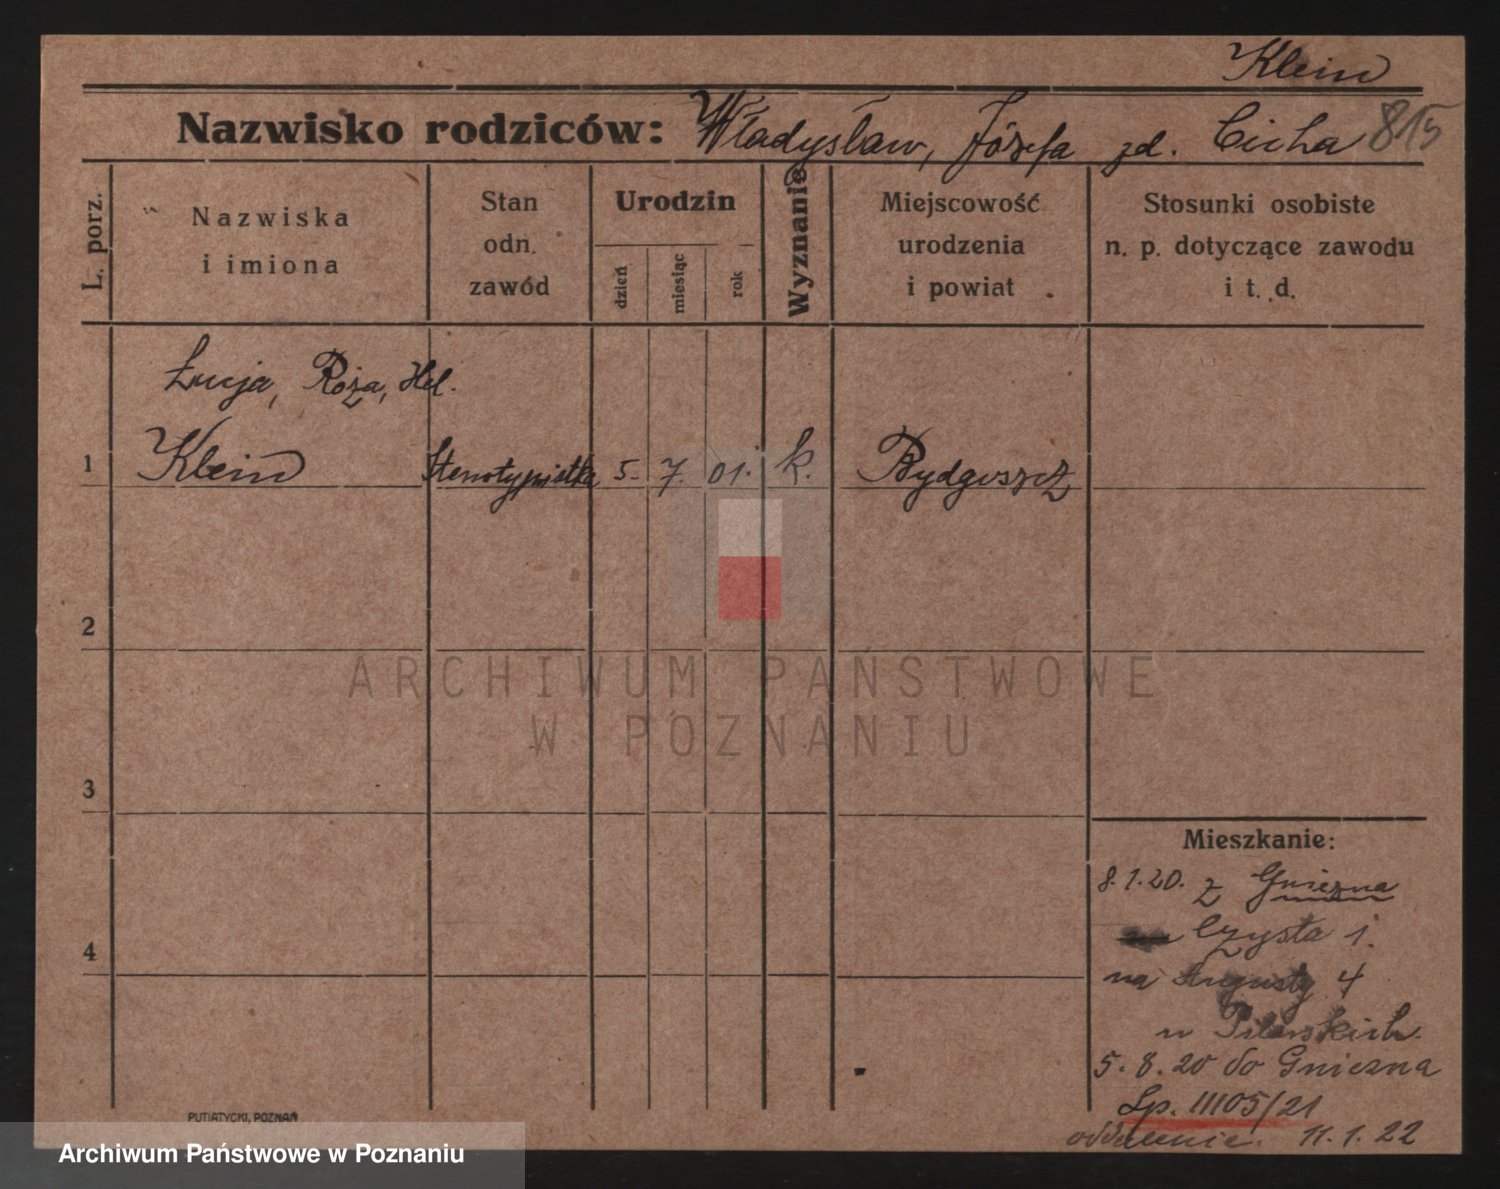 Klein
Nazwisko rodziców: Władysław, Józefa zd. Cicha 815
L. porz.
Nazwiska
i imiona
Stan
odn.
zawód
Urodzin
dzień
miesiąc
rok
Wyznanie
Miejscowość
urodzenia
i powiat
Stosunki osobiste
n. p. dotyczące zawodu
i t. d.
Łucja, Róża, Hel.
1 Klein Stenotypistka 5. 7. 01. k. Bydgoszcz
2
3
4
ARCHIWUM PAŃSTWOWE
W POZNANIU
Mieszkanie:
8.1.20. z Gniezna
Czysta 1.
na Augusty 4
u
5.8.20 do Gniezna
Lp. 11105/21
11.1.22
PUTIATYCKI, POZNAŃ
Archiwum Państwowe w Poznaniu